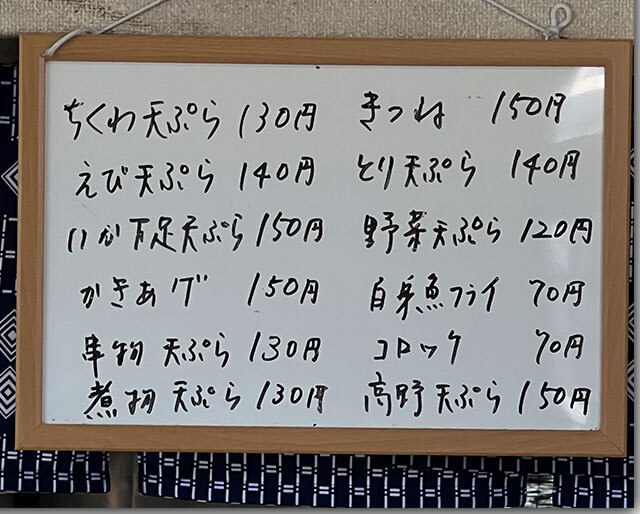 ちくわ天ぷら 130円
えび天ぷら 140円
いか下足天ぷら 150円
かきあげ 150円
串物 天ぷら 130円
煮物 天ぷら 130円
きつね 150円
とり天ぷら 140円
野菜天ぷら 120円
白身魚フライ 70円
コロッケ 70円
高野天ぷら 150円